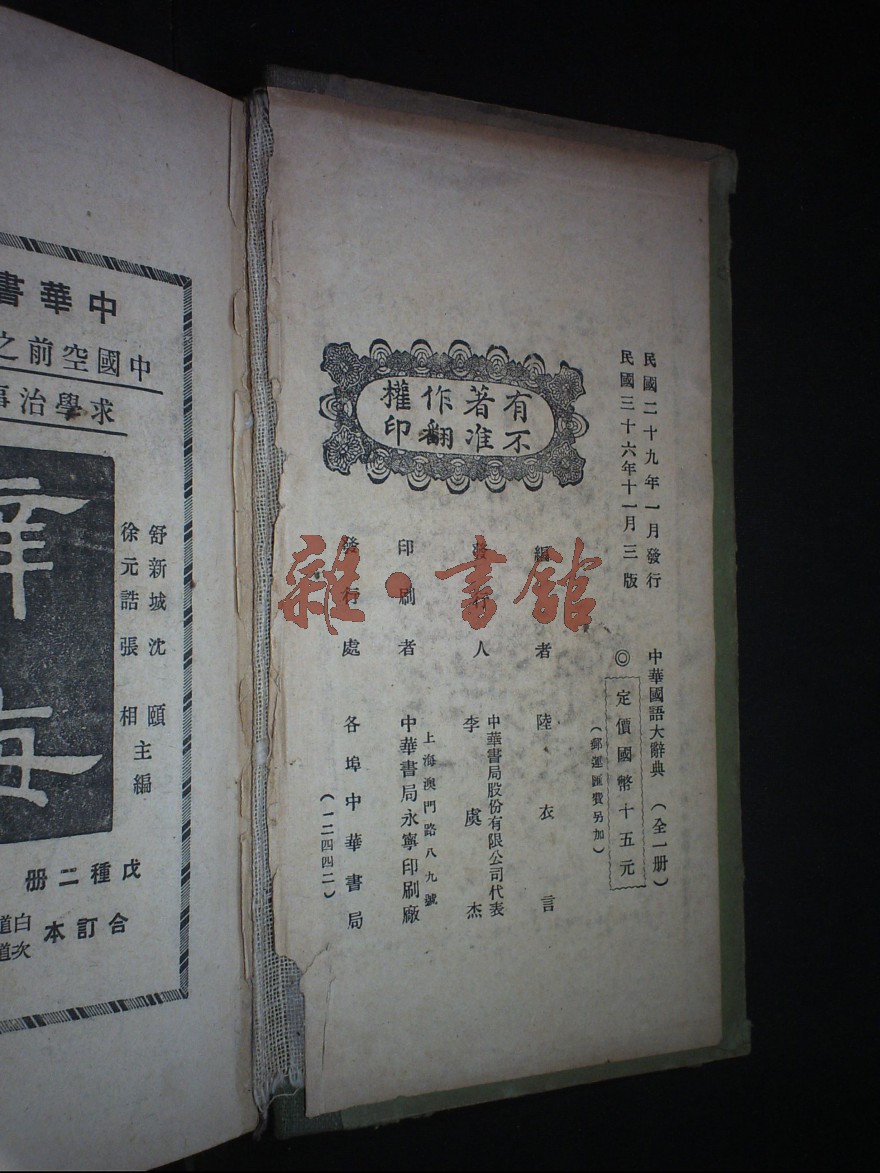 民國二十九年一月發行
民國三十六年十一月三版
中華國語大辭典（全一册）
◎定價國幣十五元
（郵運匯費另加）
有著作權
不准翻印
編者 陸衣言
發行人 中華書局股份有限公司代表
李虞杰
印刷者 上海澳門路八九號
中華書局永寧印刷廠
發行處 各埠中華書局
（一二四四二）
雜·書館
中華書
中國空前之
求學治事
辭海
舒新城 沈頤
徐元誥 張相
主編
戊種二册
合訂本
白道
次道